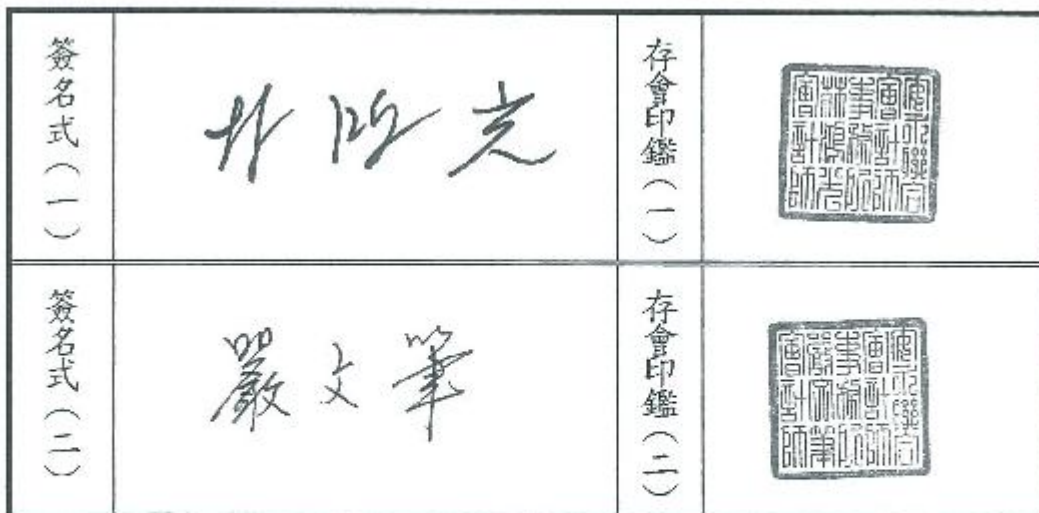 簽名式(一)
林鴻光
存會印鑑(一)
安永聯合
會計師
事務所
林鴻光
會計師
簽名式(二)
嚴文筆
存會印鑑(二)
安永聯合
會計師
事務所
嚴文筆
會計師